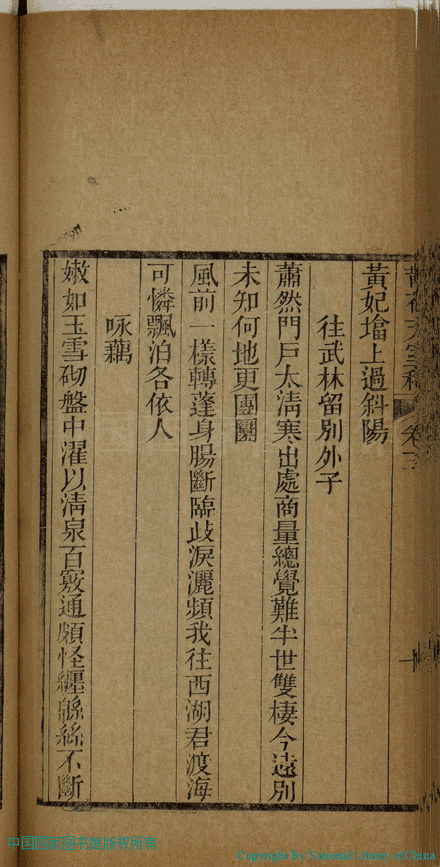 黃妃墖上過斜陽
往武林留別外子
蕭然門戶太清寒出處商量總覺難半世雙棲今遠別
未知何地更團圞
風前一樣轉蓬身腸斷臨歧淚灑頻我往西湖君渡海
可憐飄泊各依人
咏藕
嫩如玉雪砌盤中濯以清泉百竅通頗怪纏緜絲不斷
中国国家图书馆版权所有
Copyright By National Library of China